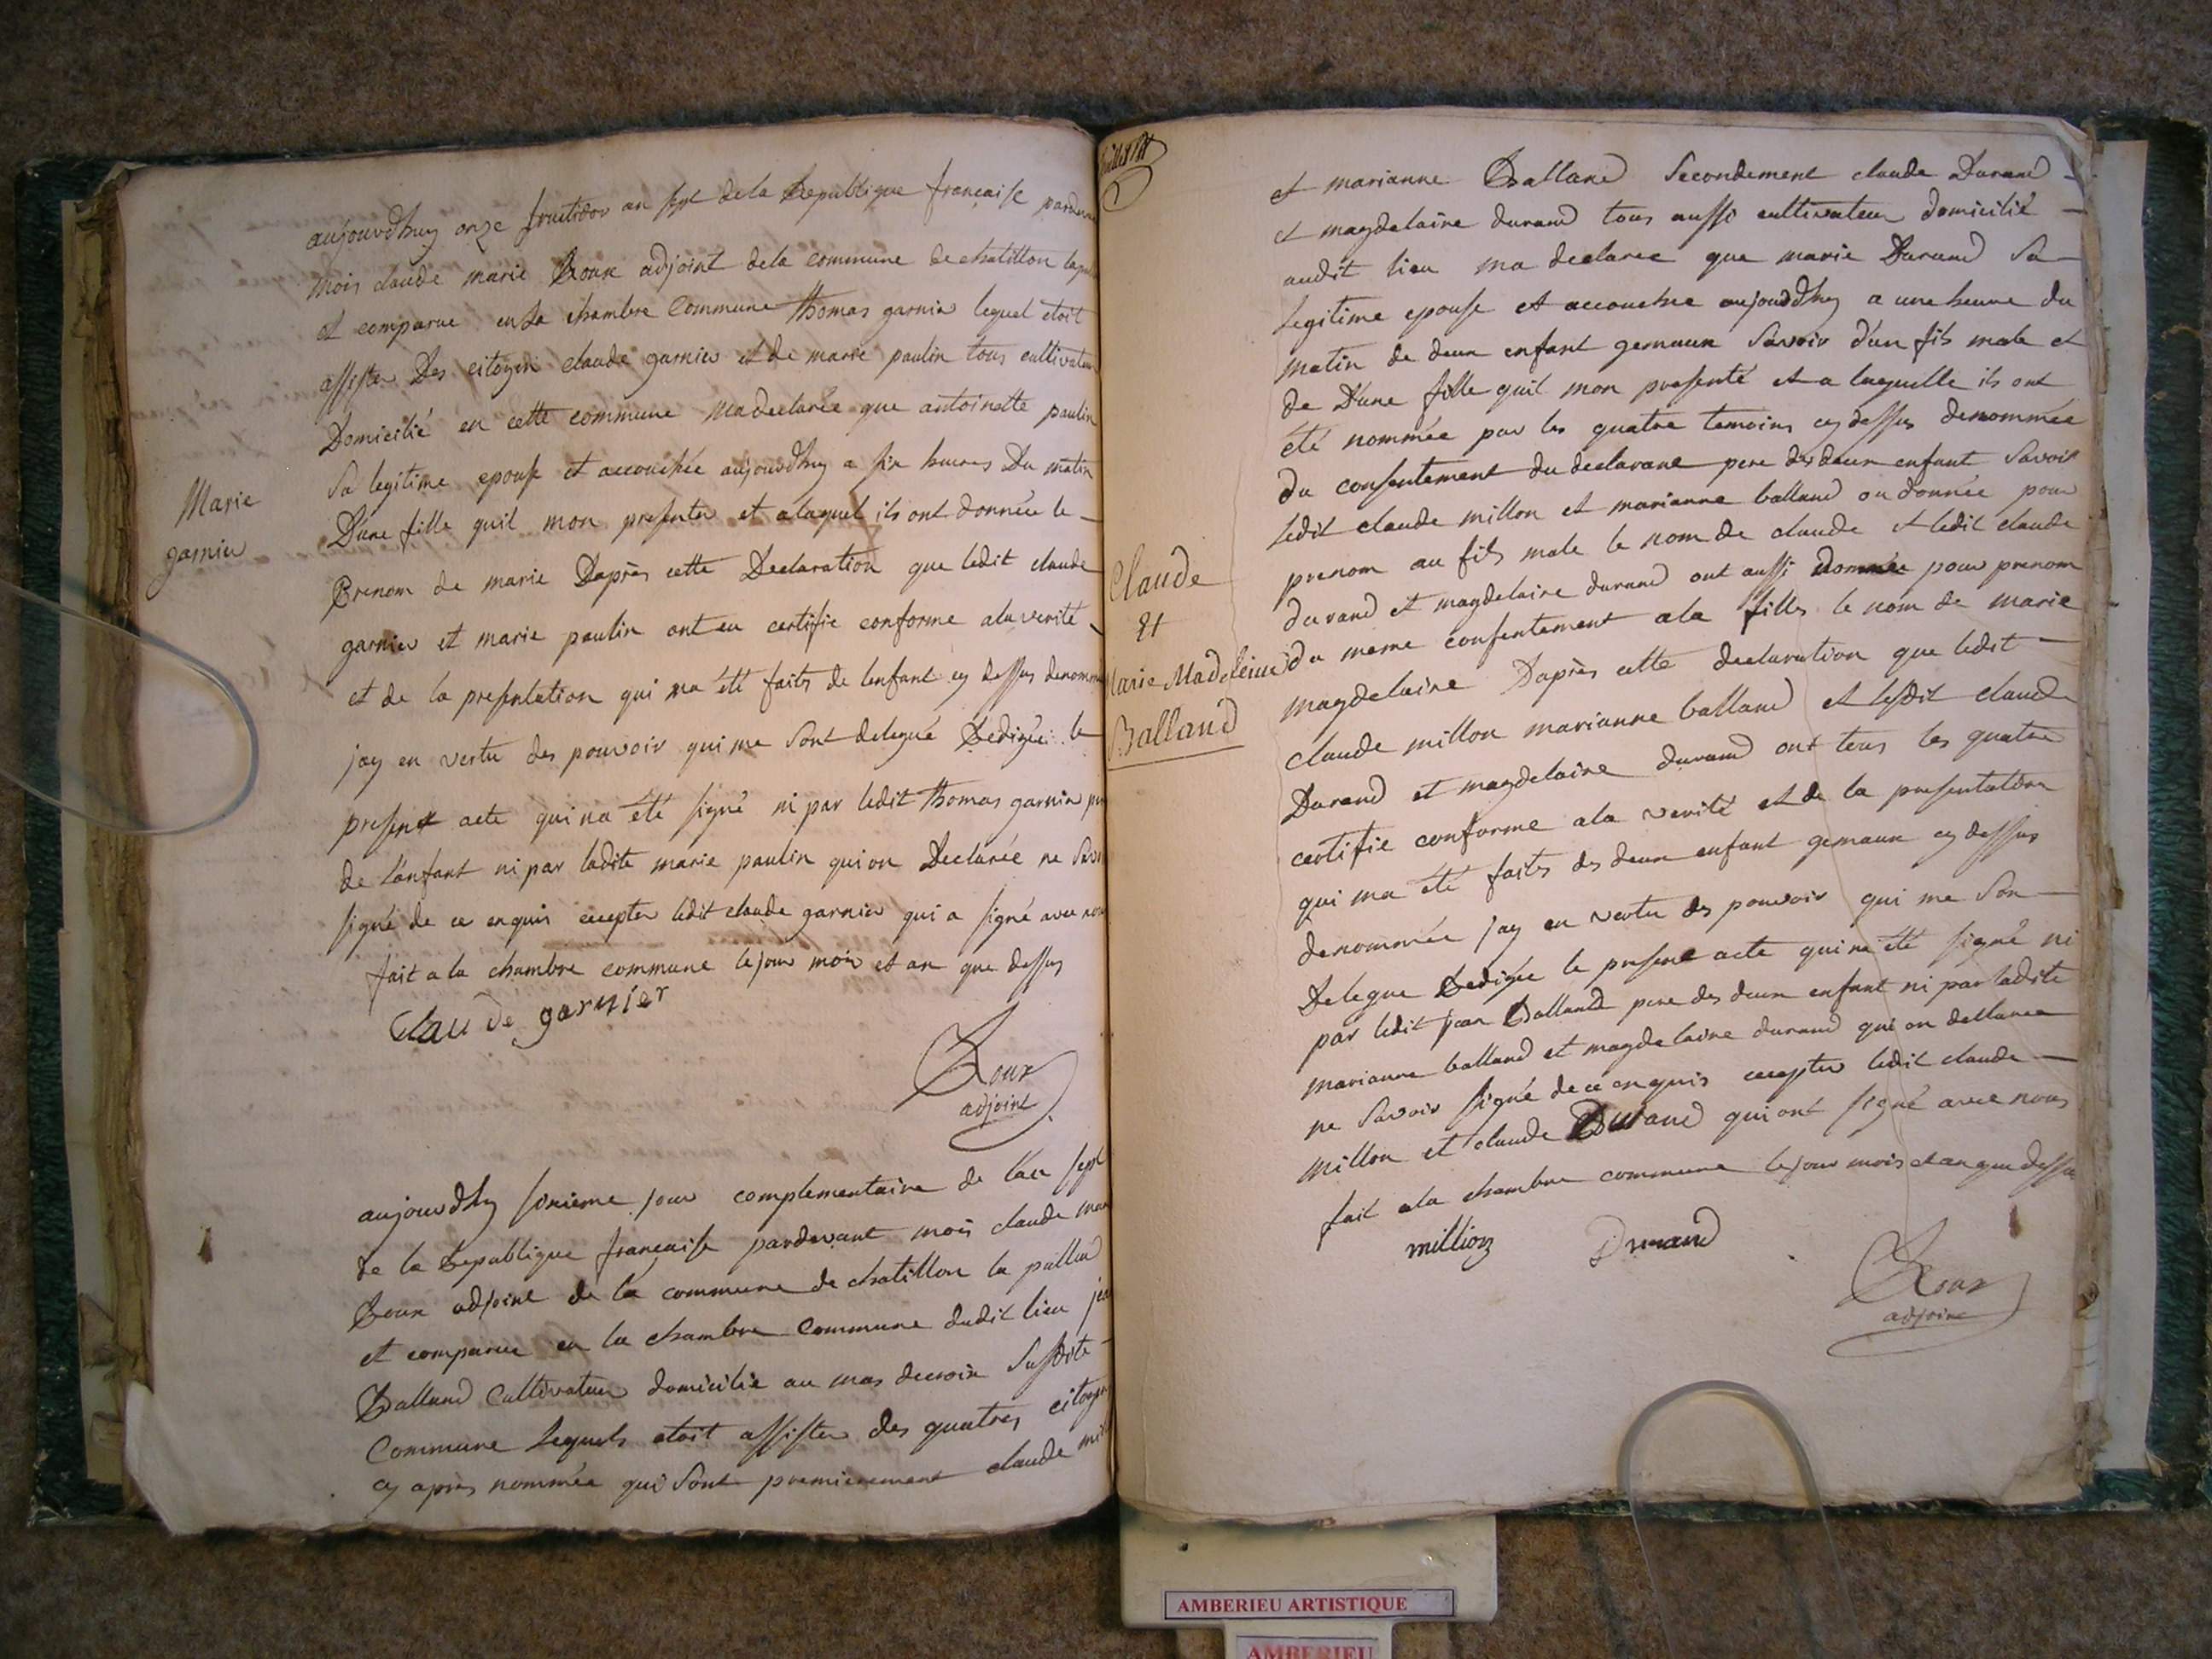 aujourdhuy onze fructidor an sept de la Republique française pardevant
mois claude marie Roux adjoint de la commune de chatillon lapalud
et comparue en la chambre Commune thomas garnier lequel etoit
assister Des citoyen claude garnier et de marie paulin tous cultivateur
Domicilié en cette commune ma declarée que antoinette paulin
Sa legitime epouse et accouchée aujourdhuy a six heures Du matin
D'une fille quil mon presenter et alaquel ils ont donnée le
Prenom de marie Daprès cette Declaration que ledit claude
garnier et marie paulin ont eu certifie conforme ala verité
et de la presentation qui ma été faits de lenfant cy dessus denommé
jay en vertu des pouvoir qui me Sont delegué Redigée le
present acte qui na été signé ni par ledit thomas garnier père
de l'enfant ni par ladite marie paulin qui on Declarée ne Savoir
signé de ce enquis excepter ledit claude garnier qui a signé avec nous
fait a la chambre commune le jour mois et an que dessus
Claude garnier
Roux
adjoint
Marie
garnier
aujourdhuy sixieme jour complementaire de l'an sept
de la Republique française pardevant mois claude marie
Roux adjoint de la commune de chatillon la pallud
et comparue en la chambre Commune dudit lieu jean
Balland Cultivateur domicilié au mas ducroix Susdite
Commune Lequels etoit assister des quatres citoyen
cy après nommée qui Sont premierement claude millon
et marianne Balland Secondement claude Durand
et magdelaine durand tous aussi cultivateur domicilié
audit lieu ma declaree que marie Durand Sa
legitime epouse et accouchee aujourdhuy a une heure du
matin de deux enfant gemaux Savoir d'un fils male et
de D'une fille quil mon presenté et a laquelle ils ont
été nommée par les quatre temoins cy dessus denommée
du consentement du declarant pere des deux enfant Savoir
ledit claude millon et marianne balland on donnée pour
prenom au fils male le nom de claude et ledit claude
durand et magdelaine durand ont aussi donnée pour prenom
du meme consentement a la filles le nom de marie
magdelaine Daprès cette declaration que ledit
claude millon marianne balland et lesdit claude
Durand et magdelaine durand ont tous les quatre
certifie conforme a la verité et de la presentation
qui ma été faits des deux enfant gemaux cy dessus
denommée jay en vertu des pouvoir qui me Son
Delegue Redigée le present acte qui na été signé ni
par ledit jean Balland pere des deux enfant ni par ladite
marianne balland et magdelaine durand qui on dellaree
ne Savoir signé de ce enquis excepter ledit claude
millon et claude Durand qui ont signé avec nous
fait a la chambre commune le jour mois et an que dessus
million Durand
Roux
adjoint
Claude
Et
Marie Madeleine
Balland
AMBERIEU ARTISTIQUE
AMBERIEU